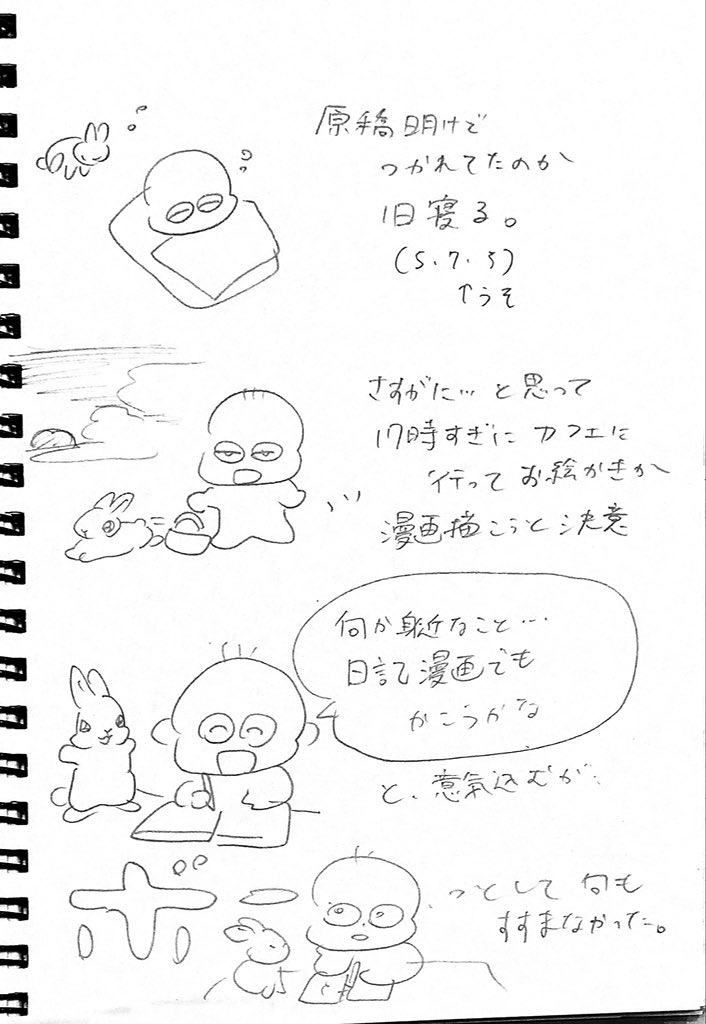 原稿明けで
つかれてたのか
1日寝る。
(5.7.5)
↑うそ
さすがに…と思って
17時すぎにカフェに
行ってお絵かきか
漫画描こうと決意
何か身近なこと…
日記漫画でも
かこうかな
と、意気込むが、
ボーっとして何も
すすまなかった。